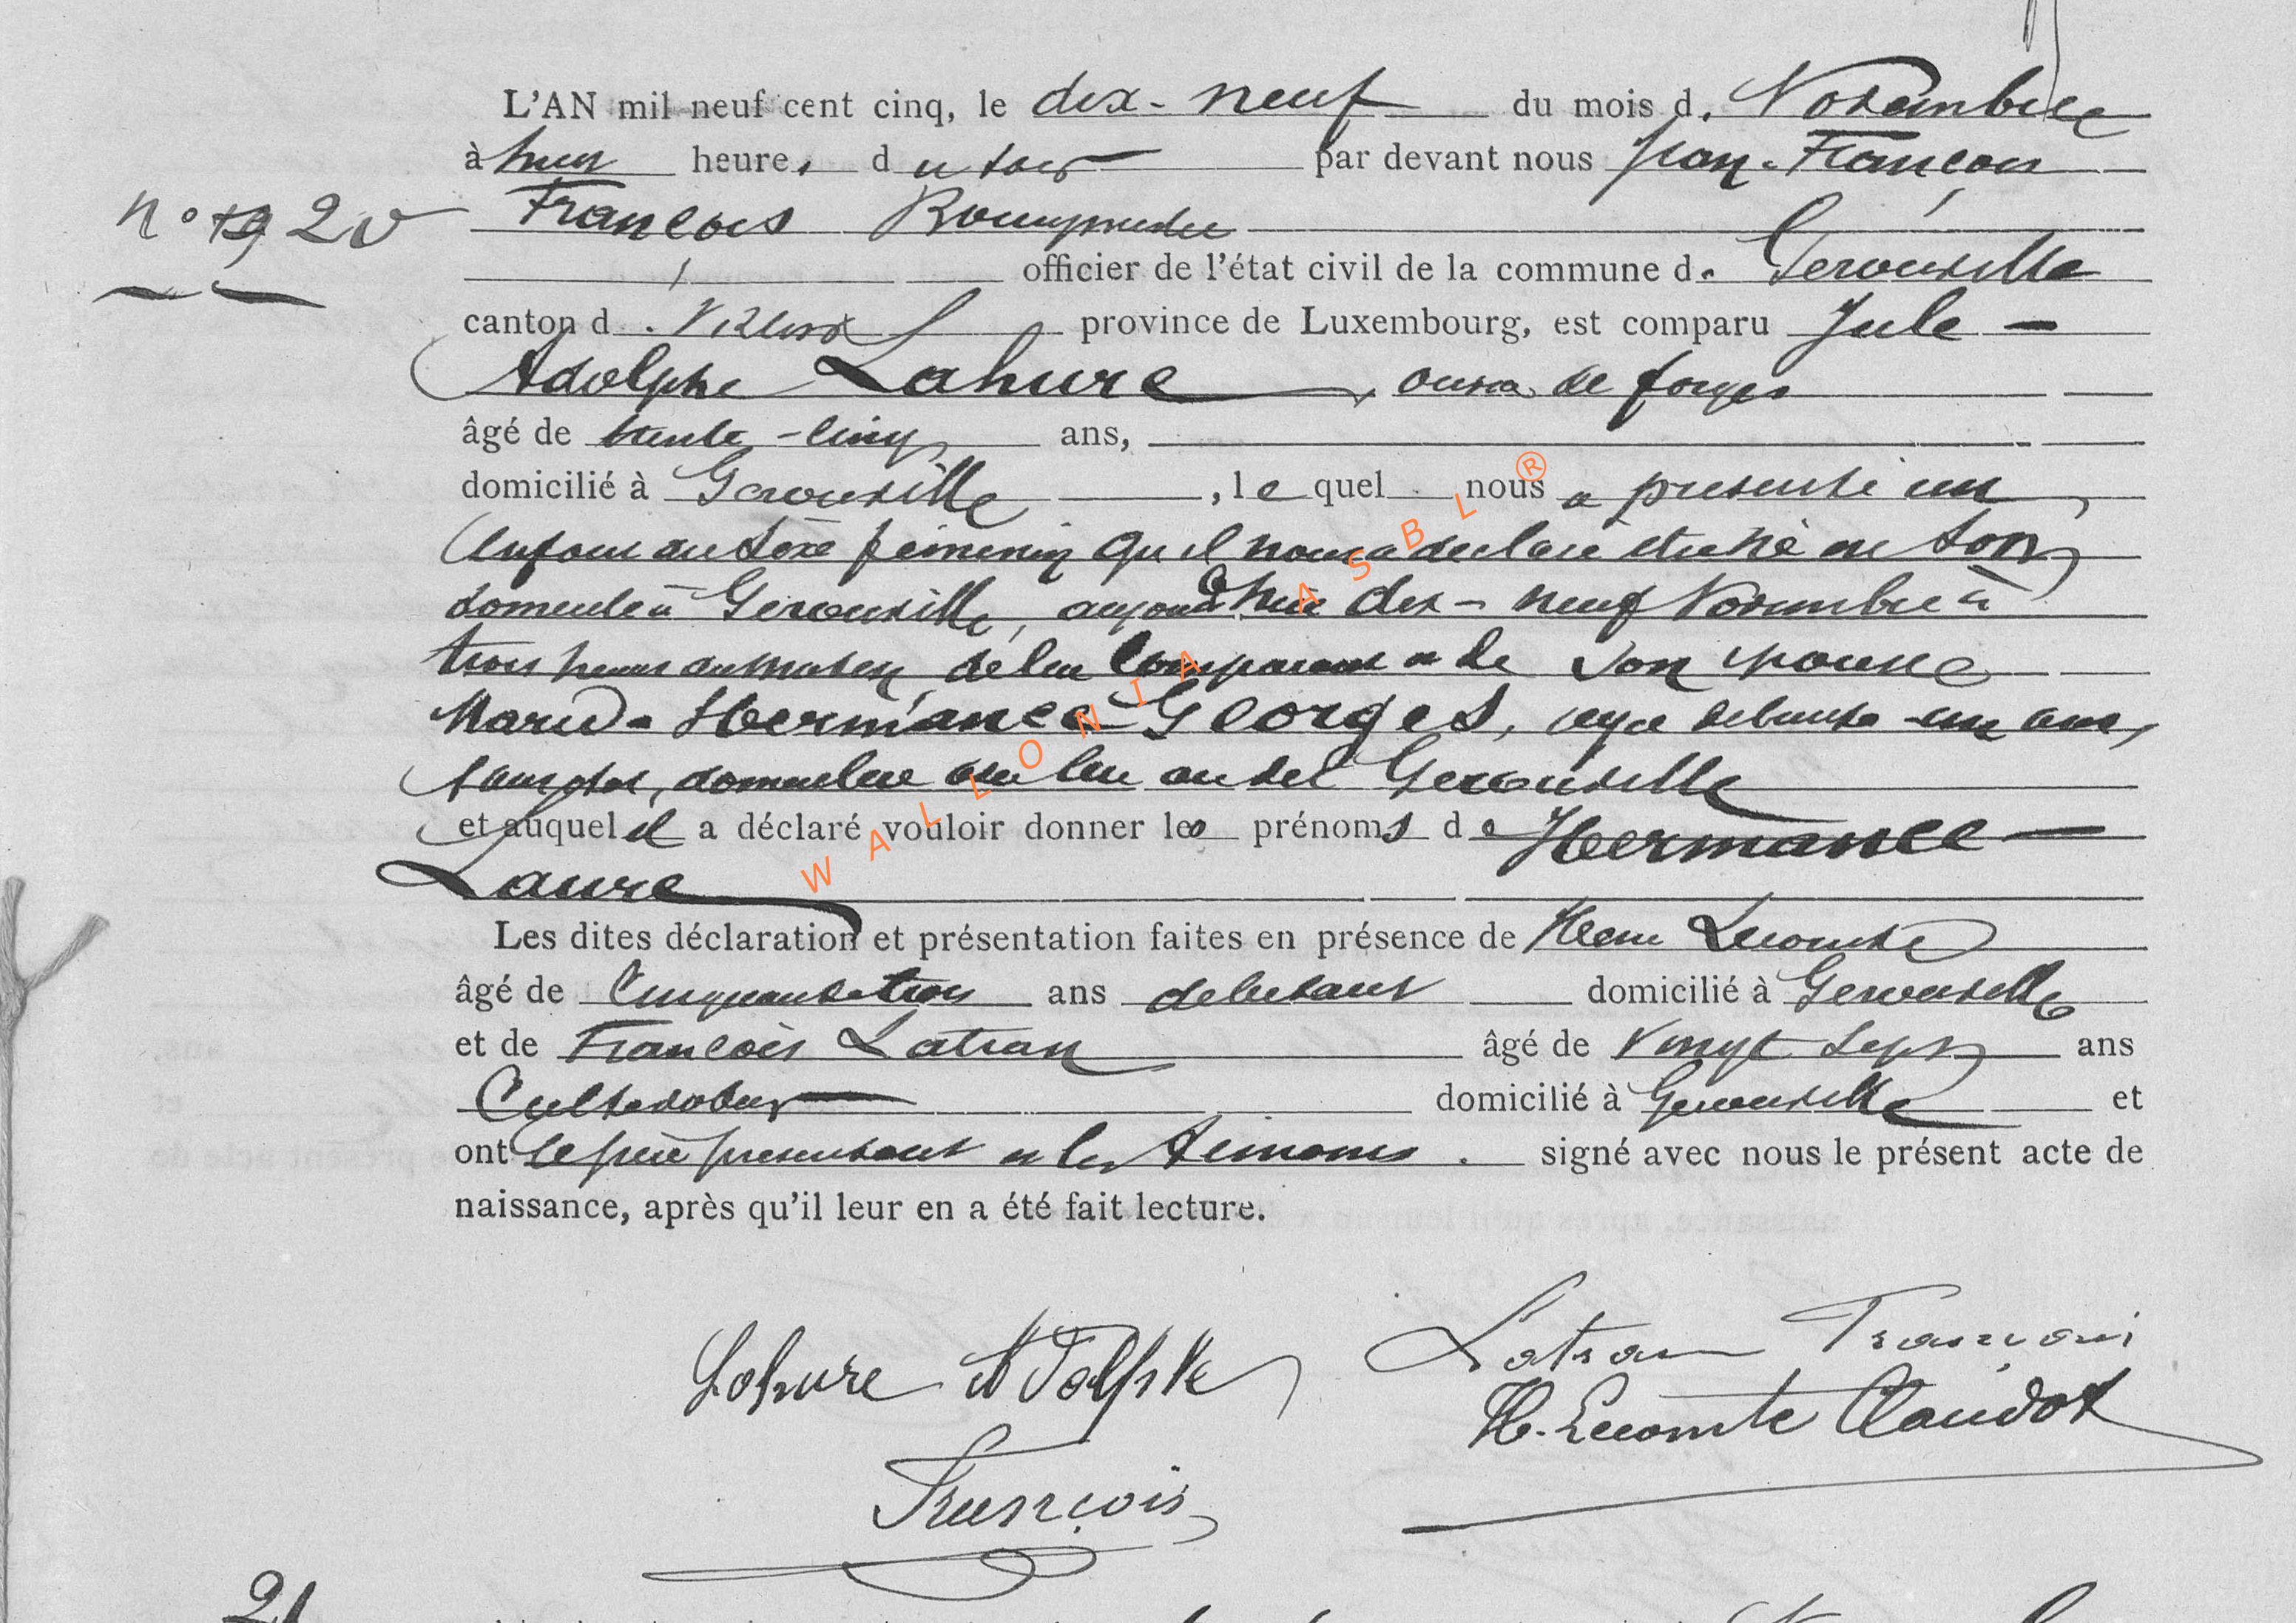 L'AN mil neuf cent cinq, le dix-neuf du mois de Novembre
à huit heures du soir par devant nous Jean-François
n° 19 20 François Bourgmestre
officier de l'état civil de la commune de Gérouville
canton de Virton province de Luxembourg, est comparu Jule-
Adolphe Lahure, ouvr. de forges
âgé de trente-cinq ans,
domicilié à Gérouville, lequel nous a présenté un
enfant du sexe féminin qu'il nous a déclaré être né en son
domicile à Gérouville, aujourd'hui dix-neuf Novembre à
trois heures du matin, de lui comparant et de son épouse
Marie-Hermance Georges, âgée de trente-un ans,
sans état, domiciliée avec lui au dit Gérouville
et auquel il a déclaré vouloir donner les prénoms de Hermance
Laure
Les dites déclaration et présentation faites en présence de Henri Lecomte
âgé de Cinquante trois ans débitant domicilié à Gérouville
et de François Latran âgé de Vingt sept ans
Cultivateur domicilié à Gérouville et
ont le père présentant et les témoins signé avec nous le présent acte de
naissance, après qu'il leur en a été fait lecture.
Lahure Adolphe Latran François
H. Lecomte Claudot
François
21
WALLONIA ASBL ®